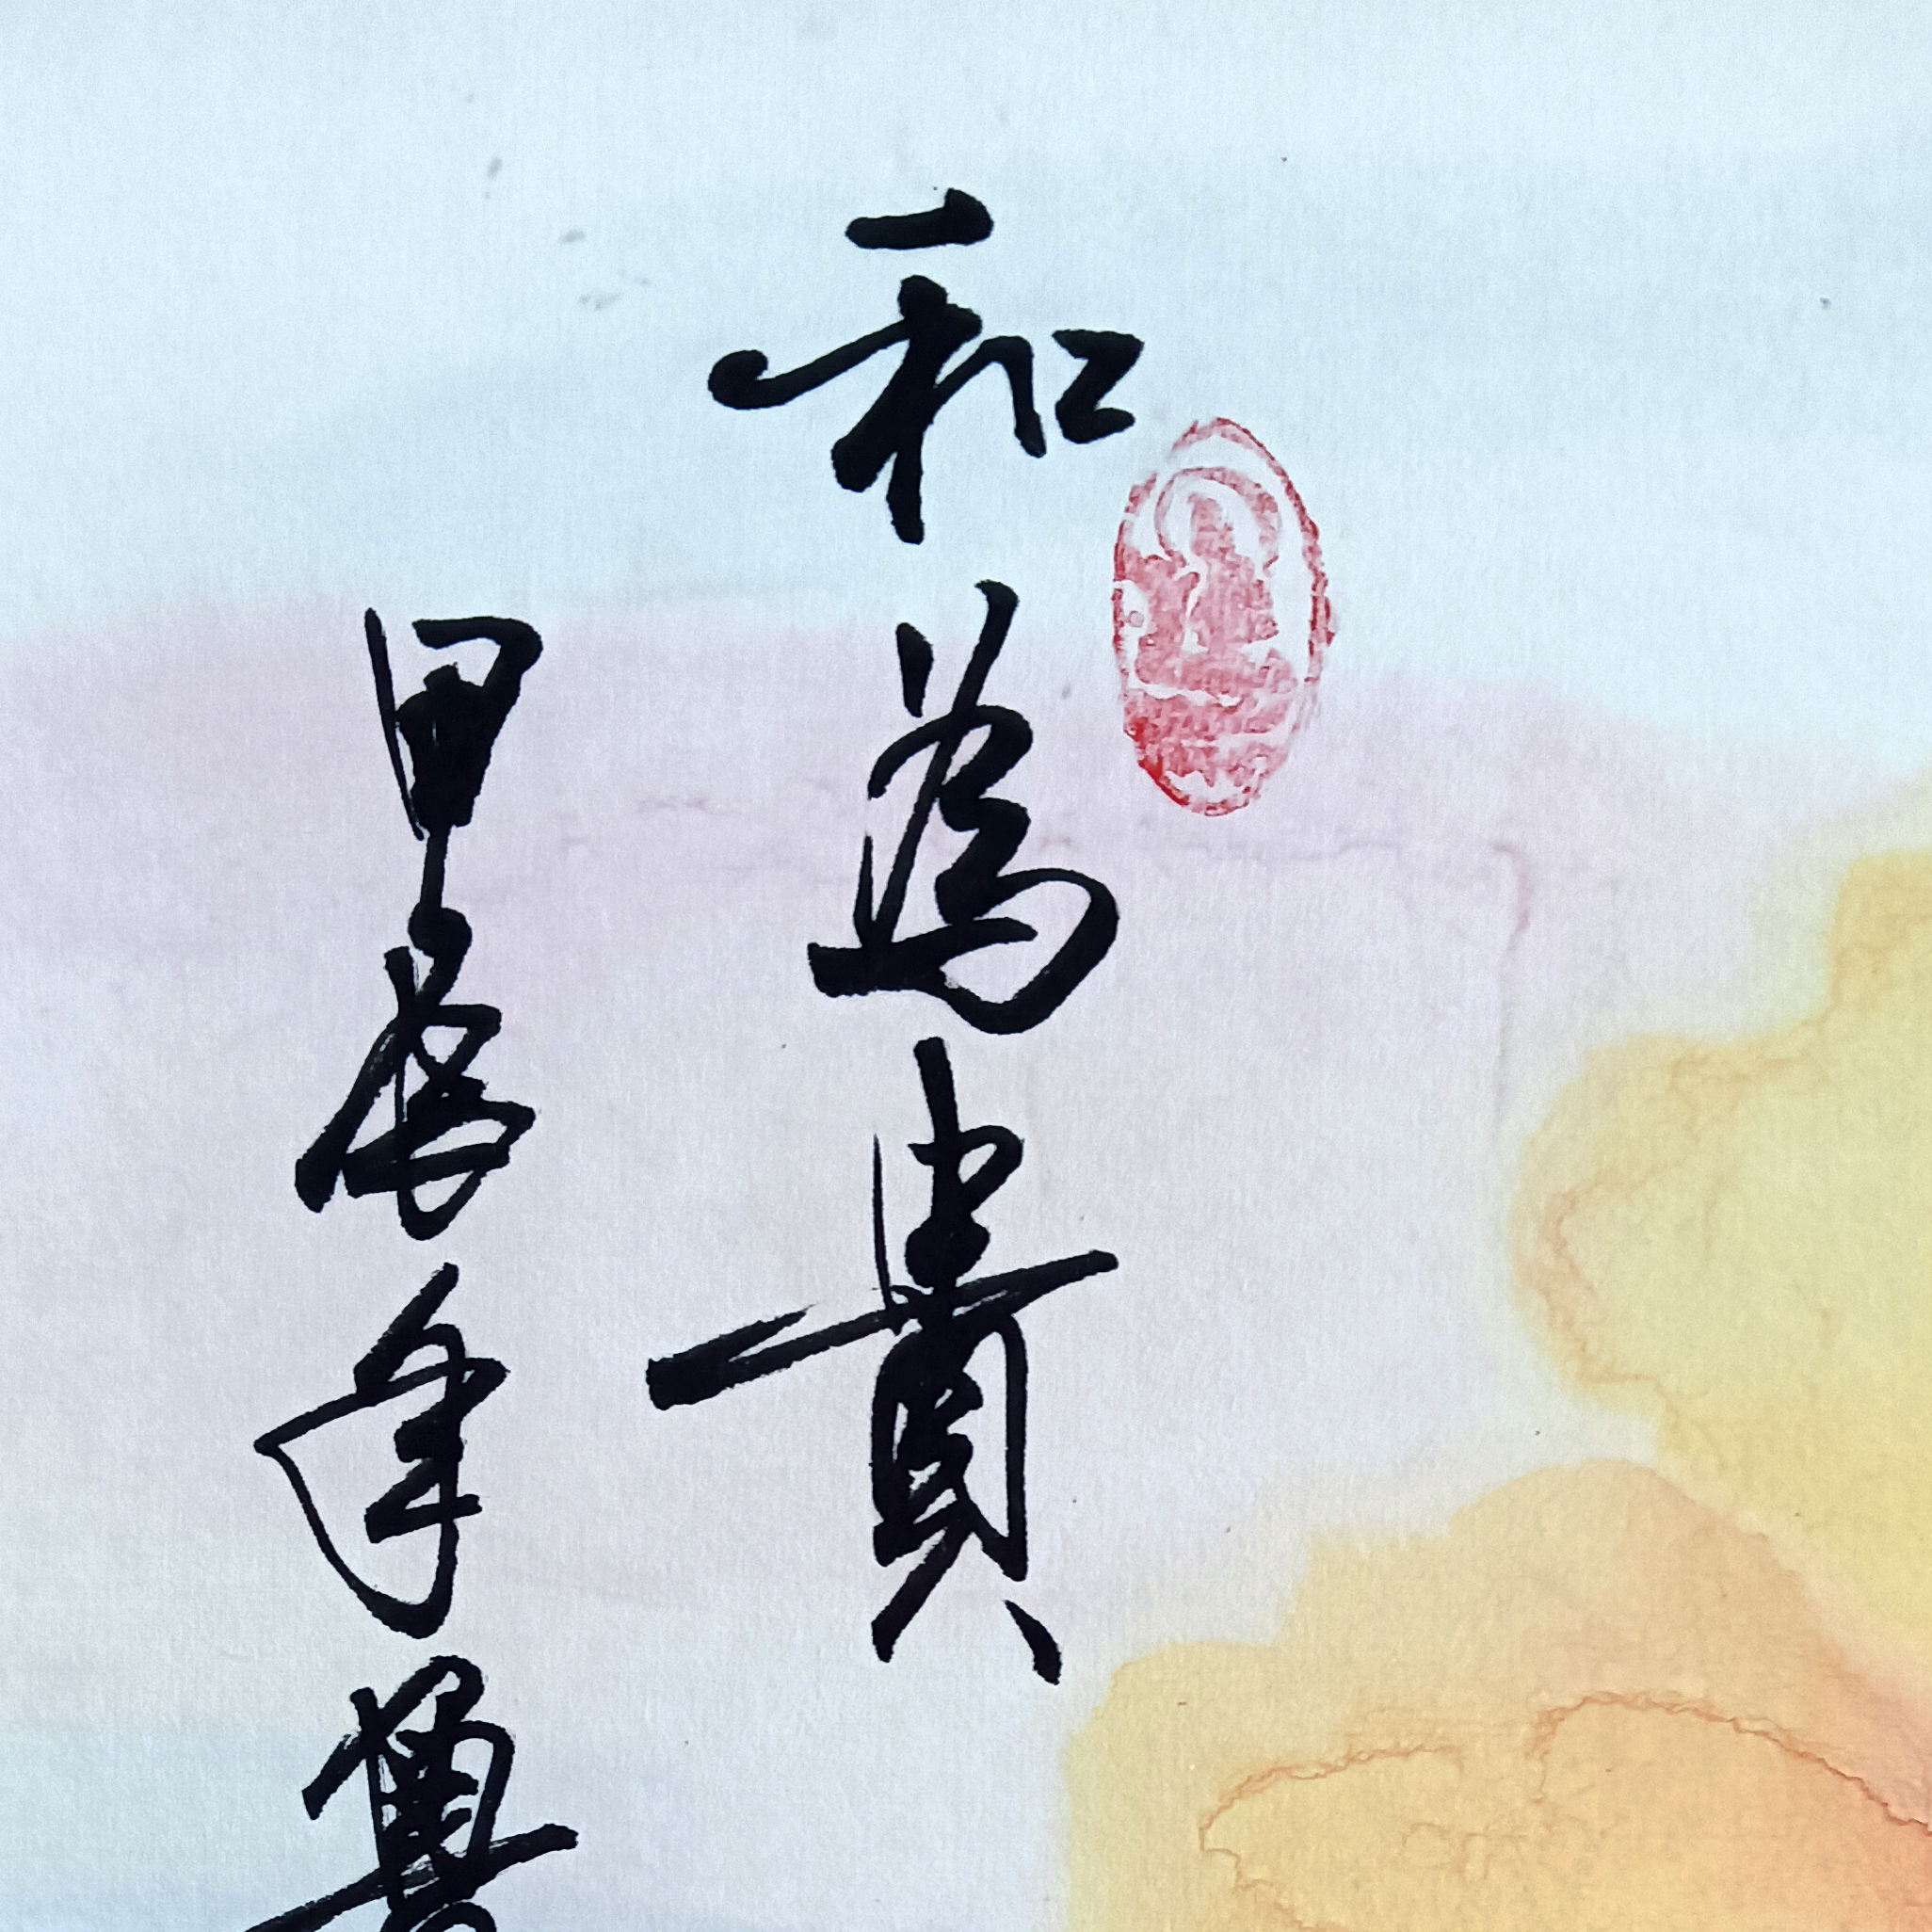 和為貴
甲辰年